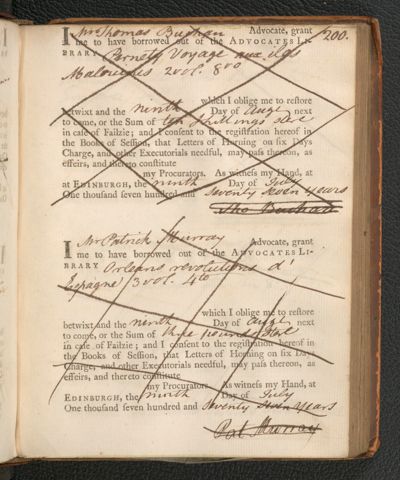 200.
I Mr Thomas Buchan Advocate, grant
me to have borrowed out of the ADVOCATES LI-
BRARY Pernety Voyage aux iles
Malouines 2 vol. 8vo
which I oblige me to restore
betwixt and the ninth Day of Augt next
to come, or the Sum of ten shillings ster
in case of Failzie; and I consent to the registration hereof in
the Books of Session, that Letters of Horning on six Days
Charge, and other Executorials needful, may pass thereon, as
effeirs, and thereto constitute
my Procurators. As witness my Hand, at
at EDINBURGH, the ninth Day of July
One thousand seven hundred and seventy seven years
Tho Buchan
I Mr Patrick Murray Advocate, grant
me to have borrowed out of the ADVOCATES LI-
BRARY Orleans revolutions d'
Espagne 3 vol. 4to
which I oblige me to restore
betwixt and the ninth Day of Augt next
to come, or the Sum of three pounds ster
in case of Failzie; and I consent to the registration hereof in
the Books of Session, that Letters of Horning on six Days
Charge, and other Executorials needful, may pass thereon, as
effeirs, and thereto constitute
my Procurators. As witness my Hand, at
EDINBURGH, the ninth Day of July
One thousand seven hundred and seventy seven years
Pat Murray